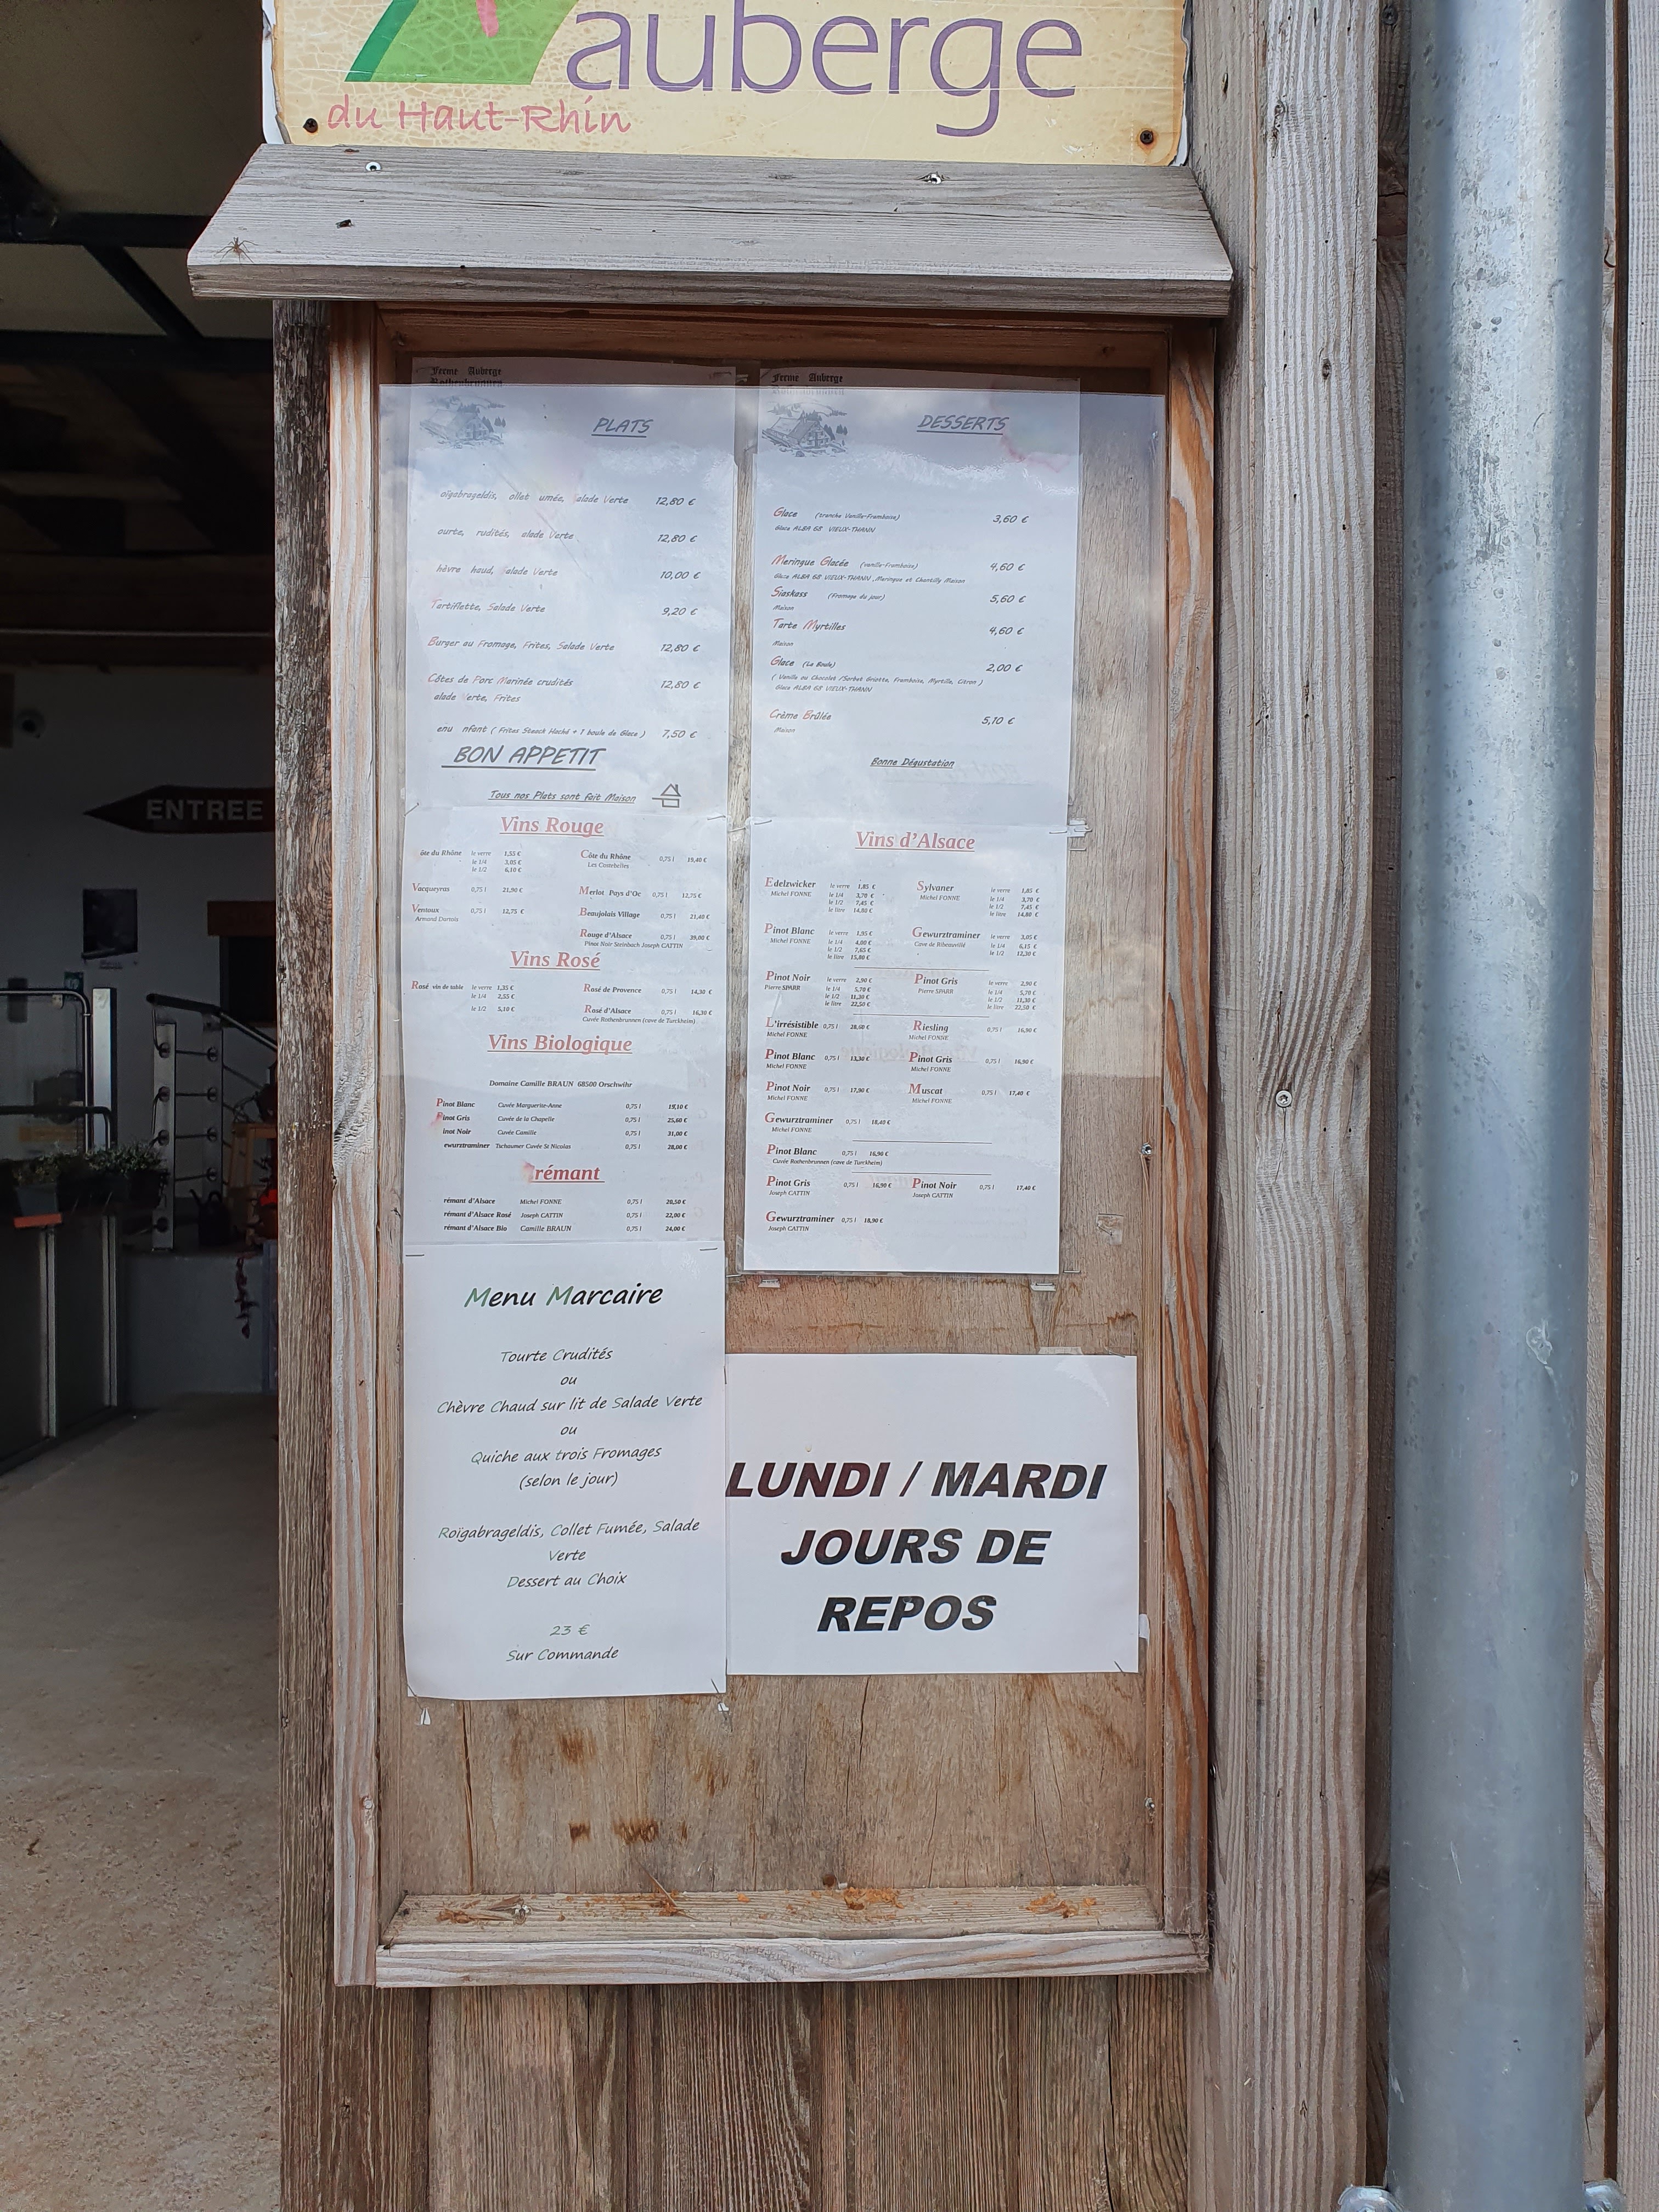 auberge
du Haut-Rhin
Ferme Auberge
Rothenbrunnen
PLATS
oigabrageldis, ollet umée, alade Verte 12,80 €
ourte, rudités, alade Verte 12,80 €
hèvre haud, alade Verte 10,00 €
Tartiflette, Salade Verte 9,20 €
Burger au Fromage, Frites, Salade Verte 12,80 €
Côtes de Porc Marinée crudités 12,80 €
alade erte, Frites
enu nfant ( Frites Steack Haché + 1 boule de Glace ) 7,50 €
BON APPETIT
Tous nos Plats sont fait Maison
Ferme Auberge
DESSERTS
Glace (tranche Vanille-Framboise) 3,60 €
Glace ALBA 68 VIEUX-THANN
Meringue Glacée (vanille-Framboise) 4,60 €
Glace ALBA 68 VIEUX-THANN, Meringue et Chantilly Maison
Siaskass (Fromage du jour) 5,60 €
Maison
Tarte Myrtilles 4,60 €
Maison
Glace (La Boule) 2,00 €
( Vanille ou Chocolat /Sorbet Griotte, Framboise, Myrtille, Citron )
Glace ALBA 68 VIEUX-THANN
Crème Brûlée 5,10 €
Maison
Bonne Dégustation
ENTREE
Vins Rouge
ôte du Rhône le verre 1,55 €
le 1/4 3,05 €
le 1/2 6,10 €
Côte du Rhône 0,75 l 19,40 €
Les Costebelles
Vacqueyras 0,75 l 21,90 €
Merlot Pays d'Oc 0,75 l 12,75 €
Ventoux 0,75 l 12,75 €
Armand Dartois
Beaujolais Village 0,75 l 21,40 €
Rouge d'Alsace 0,75 l 39,00 €
Pinot Noir Steinbach Joseph CATTIN
Vins Rosé
Rosé vin de table le verre 1,35 €
le 1/4 2,55 €
le 1/2 5,10 €
Rosé de Provence 0,75 l 14,30 €
Rosé d'Alsace 0,75 l 16,30 €
Cuvée Rothenbrunnen (cave de Turckheim)
Vins Biologique
Domaine Camille BRAUN 68500 Orschwihr
Pinot Blanc Cuvée Marguerite-Anne 0,75 l 19,10 €
Pinot Gris Cuvée de la Chapelle 0,75 l 25,60 €
inot Noir Cuvée Camille 0,75 l 31,00 €
ewurztraminer Tschaumer Cuvée St Nicolas 0,75 l 28,00 €
rémant
rémant d'Alsace Michel FONNE 0,75 l 20,50 €
rémant d'Alsace Rosé Joseph CATTIN 0,75 l 22,00 €
rémant d'Alsace Bio Camille BRAUN 0,75 l 24,00 €
Vins d'Alsace
Edelzwicker le verre 1,85 €
Michel FONNE le 1/4 3,70 €
le 1/2 7,45 €
le litre 14,80 €
Sylvaner le verre 1,85 €
Michel FONNE le 1/4 3,70 €
le 1/2 7,45 €
le litre 14,80 €
Pinot Blanc le verre 1,95 €
Michel FONNE le 1/4 4,00 €
le 1/2 7,65 €
le litre 15,80 €
Gewurztraminer le verre 3,05 €
Cave de Ribeauvillé le 1/4 6,15 €
le 1/2 12,30 €
Pinot Noir le verre 2,90 €
Pierre SPARR le 1/4 5,70 €
le 1/2 11,30 €
le litre 22,50 €
Pinot Gris le verre 2,90 €
Pierre SPARR le 1/4 5,70 €
le 1/2 11,30 €
le litre 22,50 €
L'irrésistible 0,75 l 28,60 €
Michel FONNE
Riesling 0,75 l 16,90 €
Michel FONNE
Pinot Blanc 0,75 l 13,30 €
Michel FONNE
Pinot Gris 0,75 l 16,90 €
Michel FONNE
Pinot Noir 0,75 l 17,90 €
Michel FONNE
Muscat 0,75 l 17,40 €
Michel FONNE
Gewurztraminer 0,75 l 18,40 €
Michel FONNE
Pinot Blanc 0,75 l 16,90 €
Cuvée Rothenbrunnen (cave de Turckheim)
Pinot Gris 0,75 l 16,90 €
Joseph CATTIN
Pinot Noir 0,75 l 17,40 €
Joseph CATTIN
Gewurztraminer 0,75 l 18,90 €
Joseph CATTIN
Menu Marcaire
Tourte Crudités
ou
Chèvre Chaud sur lit de Salade Verte
ou
Quiche aux trois Fromages
(selon le jour)
Roigabrageldis, Collet Fumée, Salade
Verte
Dessert au Choix
23 €
Sur Commande
LUNDI / MARDI
JOURS DE
REPOS